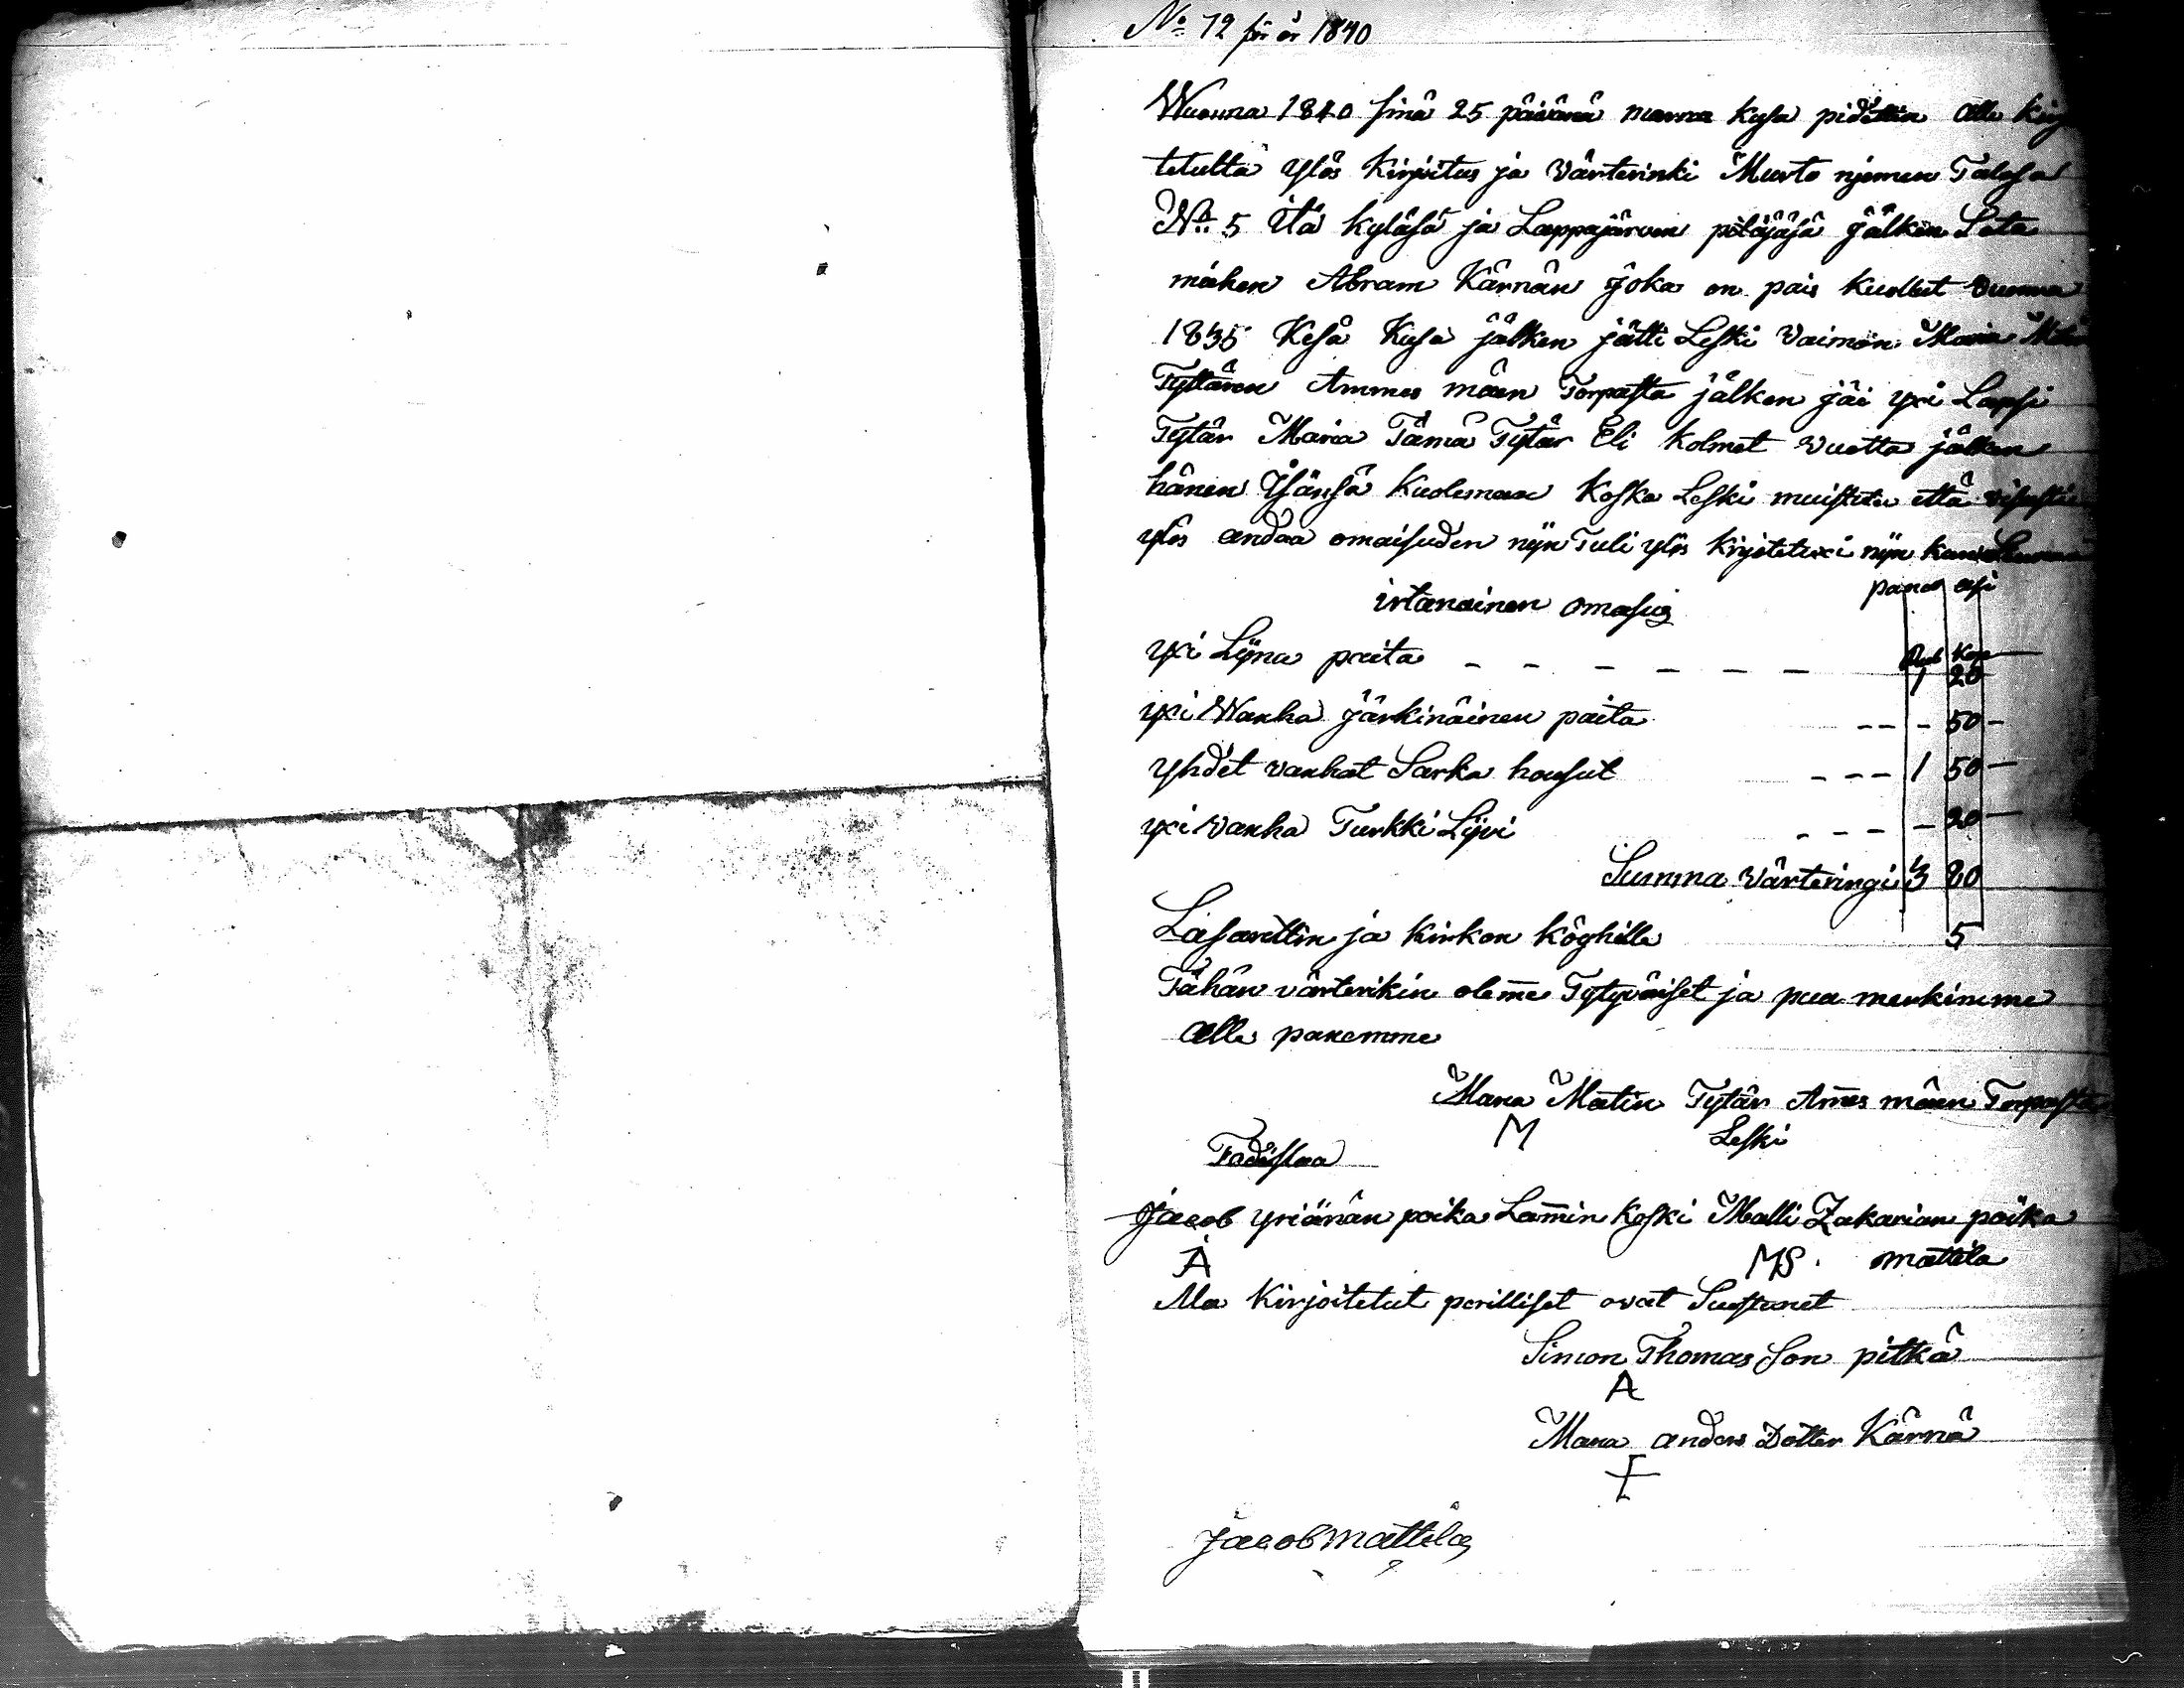 No 12 för år 1840
Wuonna 1840 sinä 25 päivänä marras kusa pidettin alle kirj
tetulta ylös kirjoitus ja värterinki Murto njemen Talosa
No 5 Itä kyläsä ja Lappajärven pitäjäsä jälken Sota
miähen Abram Kärnän joka on pois kuollut vuonna
1835 Kesä Kusa jälken jätti Leski vaimon Maria
Tyttären Ammes mäen Torpasta jälken jäi yxi Lapsi
Tytär Maria Tämä Tytär Eli kolmet vuotta jälken
hänen Isänsä Kuoleman Koska Leski muistuta että
ylös andaa omaisuden nijn Tuli ylös kirjotetuxi nijn kuin
irtanainen omasus
Rub Kop
yxi Lijna paita - - - - - - 1 20
yxi Wanha järkinäinen paita - - - 50 -
yhdet vanhat Sarka housut - - - 1 50 -
yxi vanha Turkki Lijvi - - - - 20 -
Summa värteringi 3 80
Lasarettin ja kirkon köyhille 5
Tähän värterikin olemme Tytyväiset ja puu merkimme
alle panemme
Maria Matin Tytär Ames mäen Torpasta
M Leski
Todistaa
Jacob yriänän poika Lamin koski Matti Zakarian poika
A MS. mattila
Ala Kirjoitetut perilliset ovat Suostunet
Simon Thomas Son pitkä
A
Maria anders Dotter Kärnä
Jacob mattila